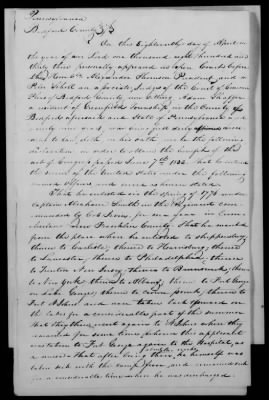 Pennsylvania
Bedford County SS
On this Eighteenth day of April in
the year of our Lord one thousand eight hundred and
thirty three personally appeared in open Court before
the Alexander Thomson President, and
a Judge of the Court of Common
Pleas of Bedford County now sitting, Adam
a resident of Greenfield Township in the County of
Bedford aforesaid and State of Pennsylvania aged
ninety one years, who being first duly
according to law, doth on his oath make the following
declaration in order to obtain the benefit of the
act of Congress passed June 7th 1832. That he entered
the service of the United States under the following
named officers and served as herein stated.
That he enlisted in the Spring of 1776 under
Captain Abraham Smith in the Regiment com-
manded by Col Irvin, for one year in
Franklin County. That he marched
from the place where he enlisted to Shippensburg
thence to Carlisle, thence to Harrisburg, thence
to Lancaster, thence to Philadelphia, thence
to Trenton New Jersey, thence to Brunswick, thence
to New York thence to Albany, thence to Fort George
on Lake George, thence to Crown point, thence to
Fort St Johns and were taken
the lakes for a considerable part of the summer
that they then went again to St Johns where they
remained for some time, where this applicant
was taken to Fort George again to the Hospital, as
a nurse. That after being there he himself was
taken sick with the camp fever, and remained sick
for a considerable time when he was discharged